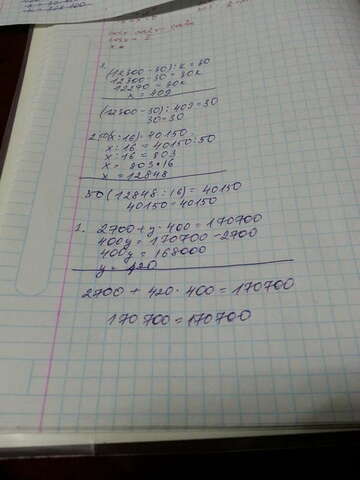 1.
(12300-30):x=30
12300-30=30x
12270=30x
x=409
(12300-30):409=30
30=30
x:16=40150:50
x:16=803
x=803*16
x=12848
50(12848:16)=40150
40150=40150
2. 2700+y·400=170700
400y=170700-2700
400y=168000
y=420
2700+420·400=170700
170700=170700